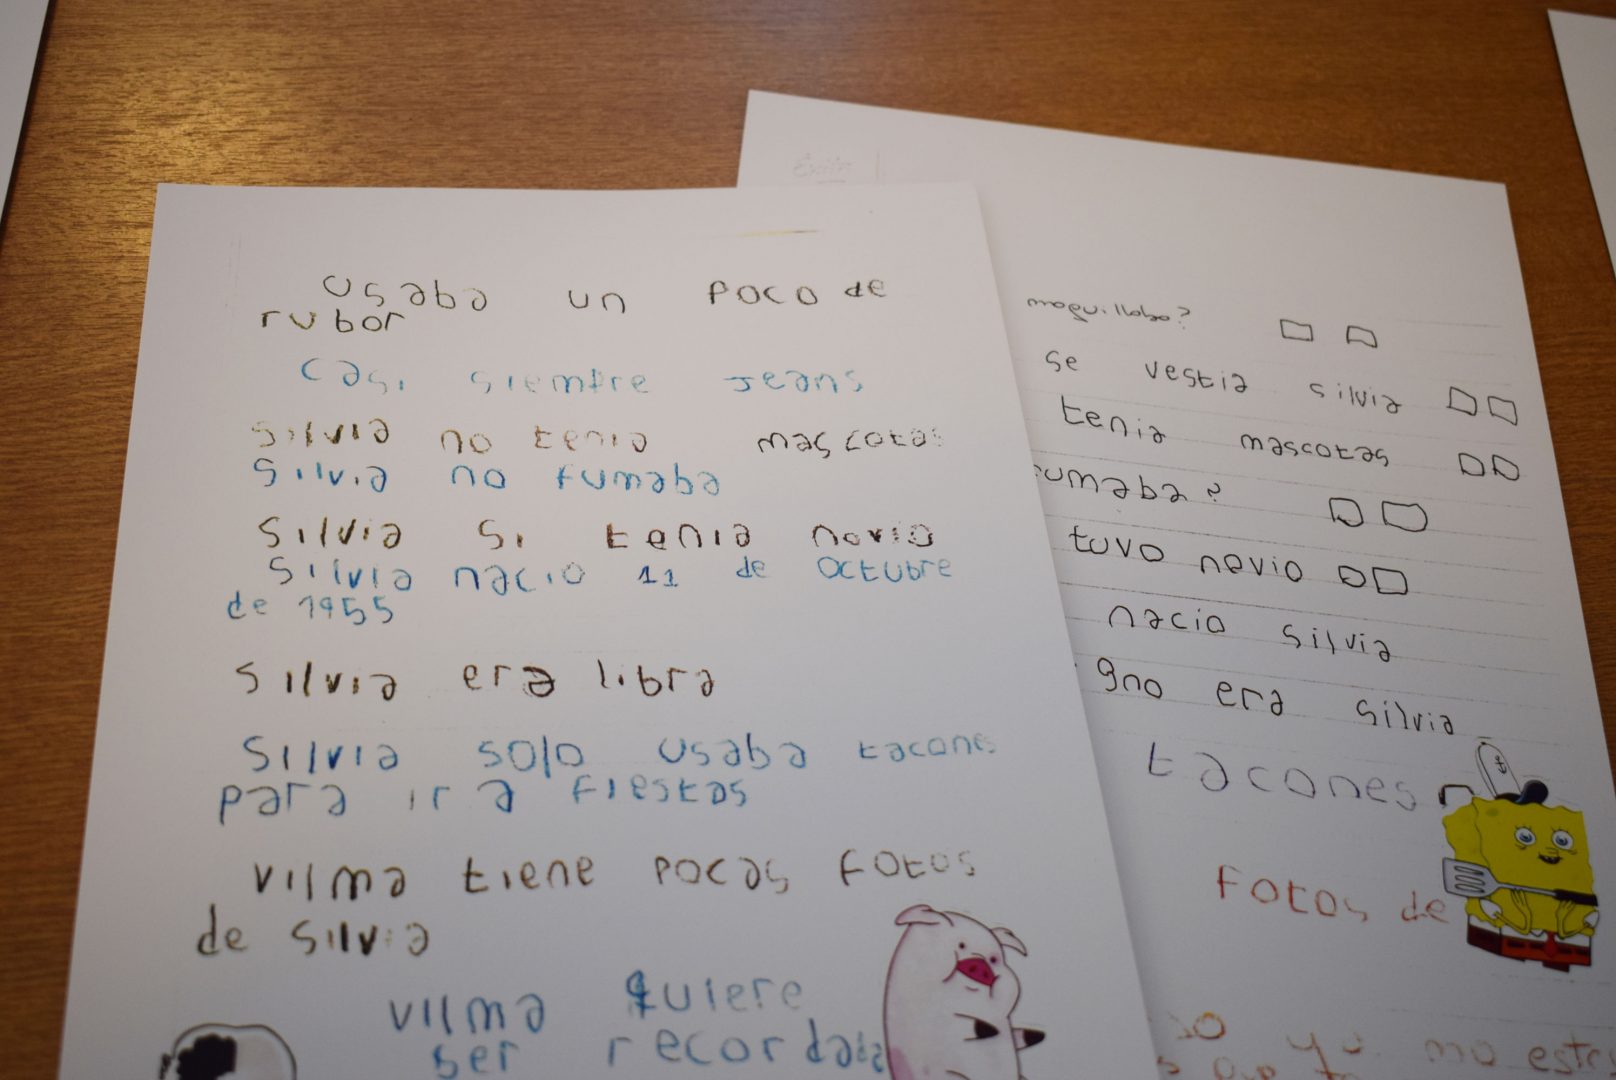 usaba un poco de
rubor
casi siempre jeans
silvia no tenia mascotas
silvia no fumaba
silvia si tenia novio
silvia nacio 11 de octubre
de 1955
silvia era libra
silvia solo usaba tacones
para ir a fiestas
vilma tiene pocas fotos
de silvia
vilma quiere
ser recordada
maquillaba?
se vestia silvia
tenia mascotas
fumaba?
tuvo novio
nacio silvia
gno era silvia
tacones
fotos de
yo no